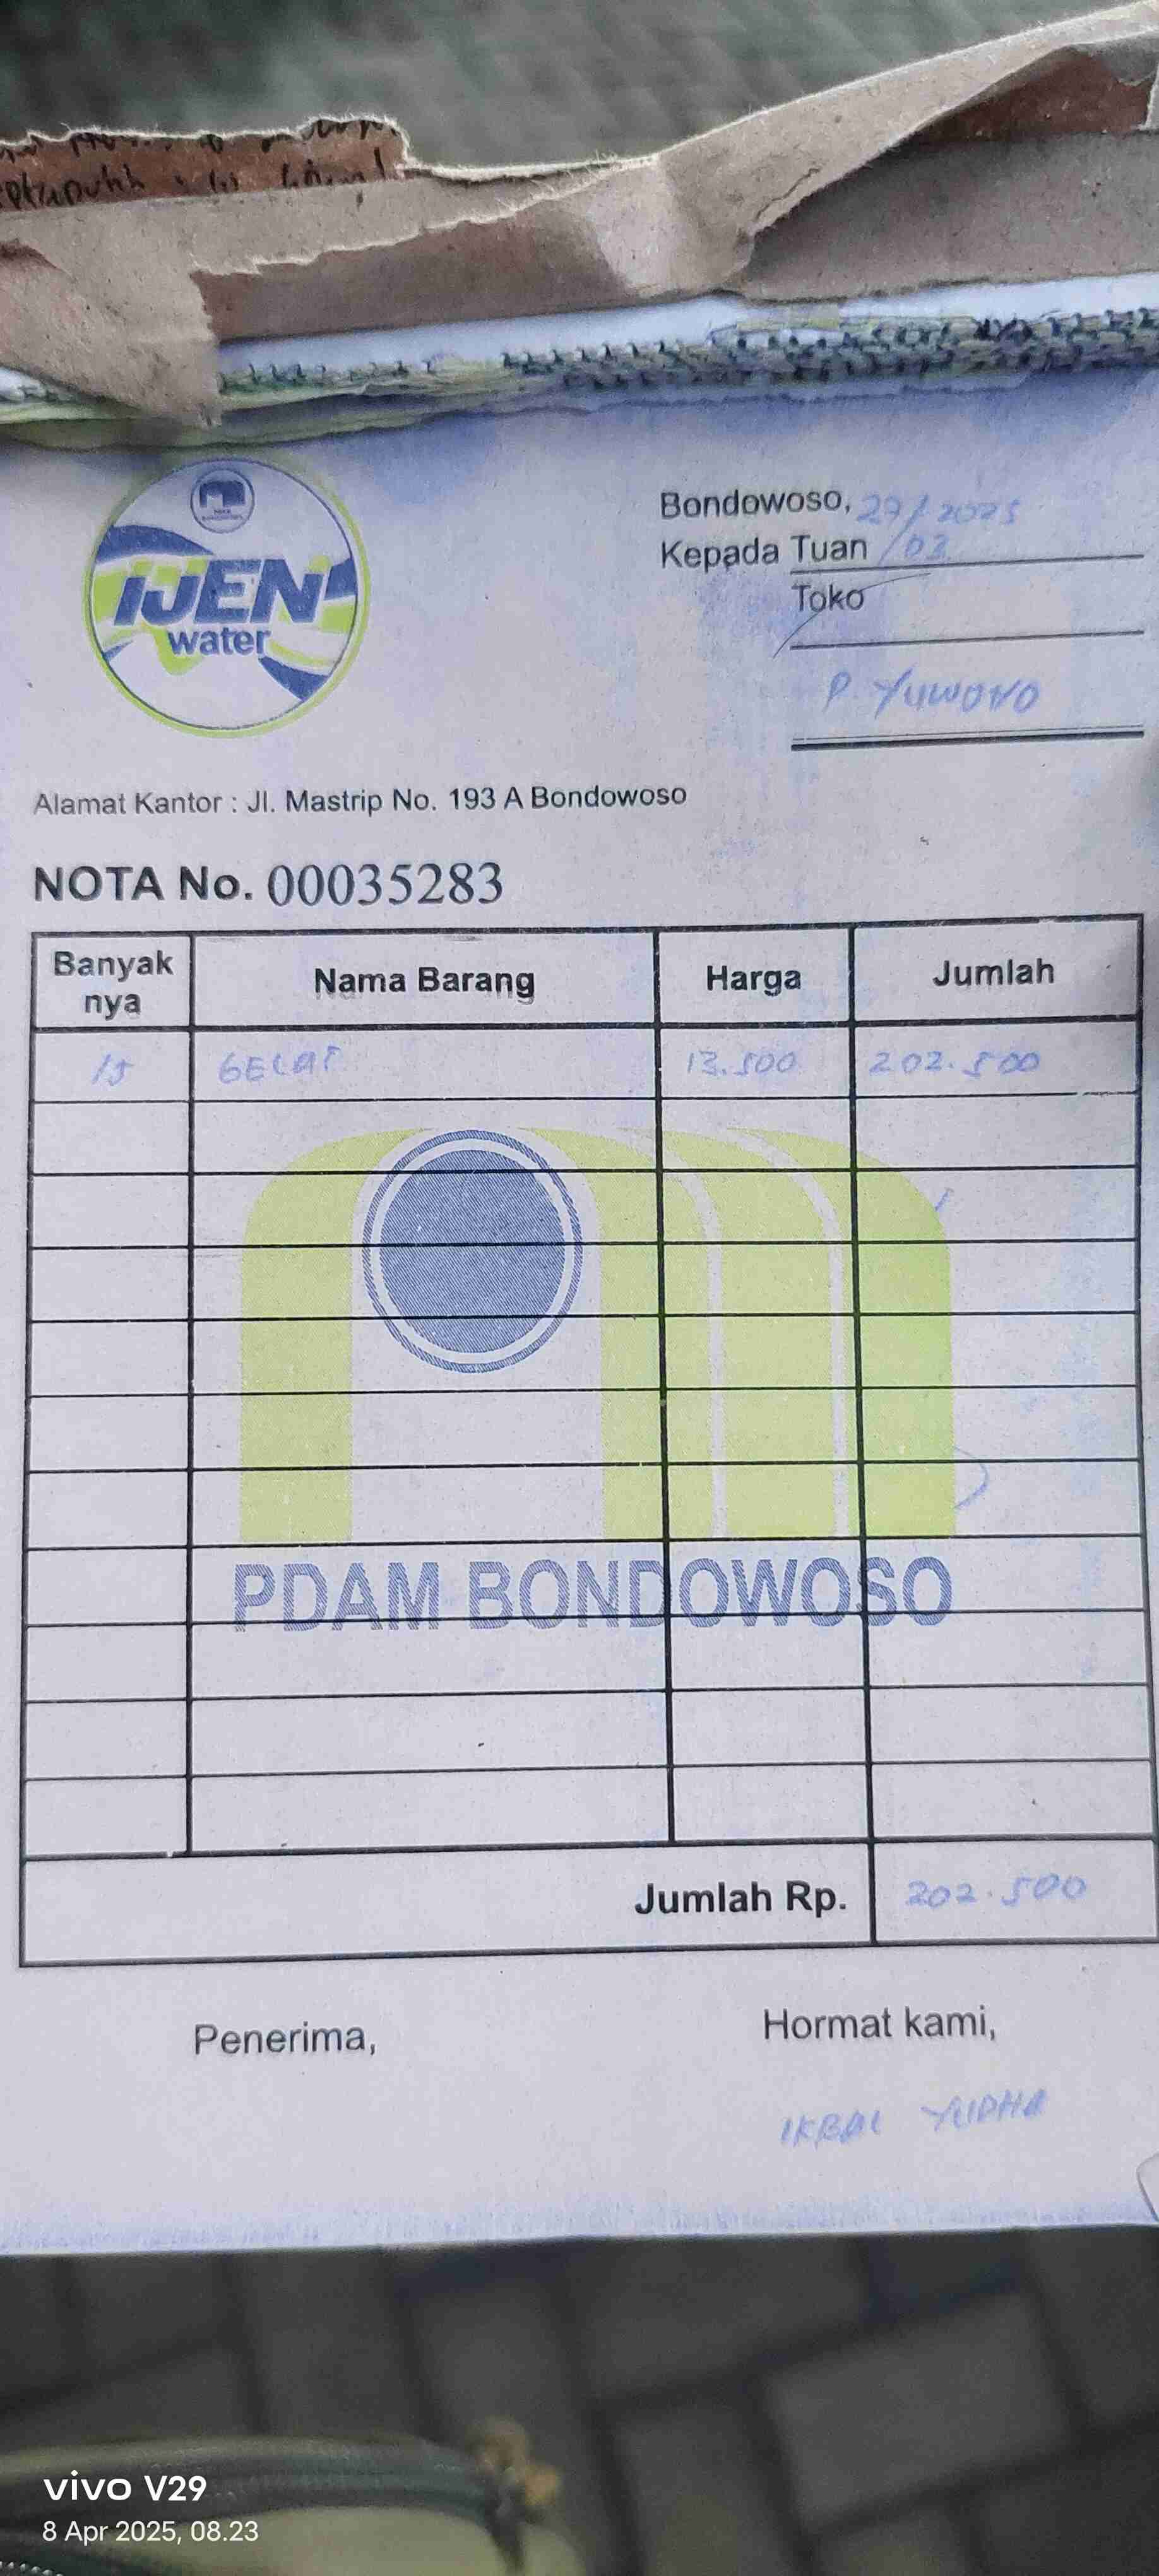 IJEN
water
Bondowoso, 29/03/2025
Kepada Tuan
Toko
P. YUWONO
Alamat Kantor : Jl. Mastrip No. 193 A Bondowoso
NOTA No. 00035283
Banyak nya Nama Barang Harga Jumlah
15 GELAS 13.500 202.500
PDAM BONDOWOSO
Jumlah Rp. 202.500
Penerima, Hormat kami,
IKBAL YUDHA
vivo V29
8 Apr 2025, 08.23